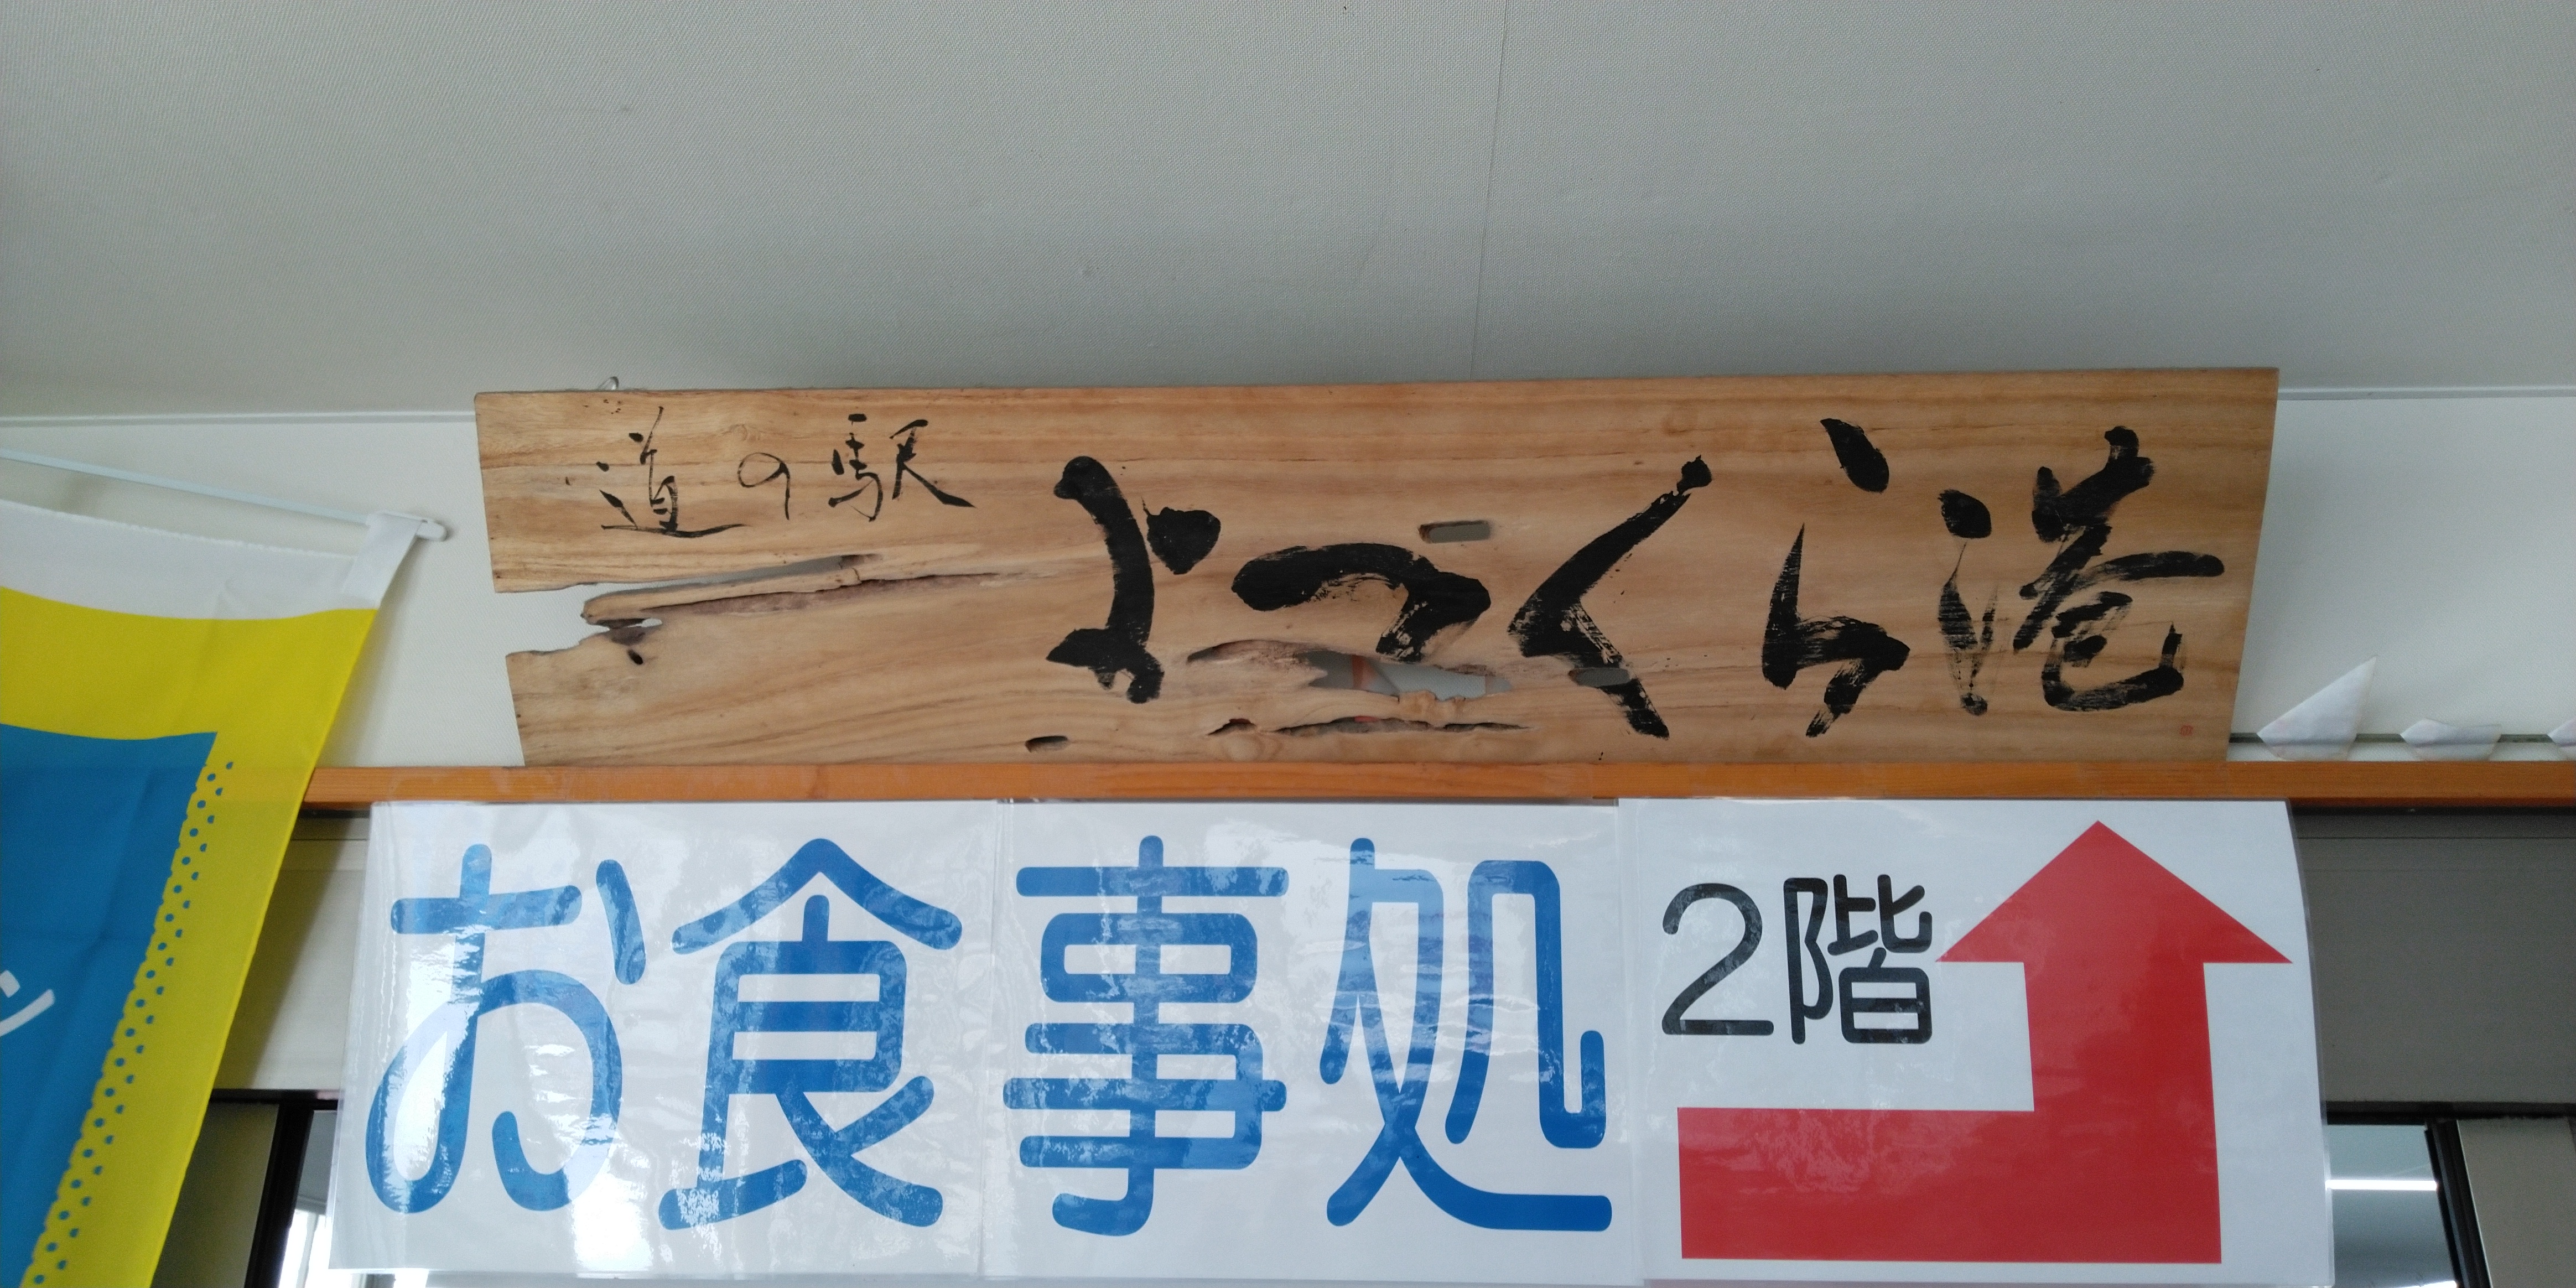 道の駅
よつくら港
お食事処
2階